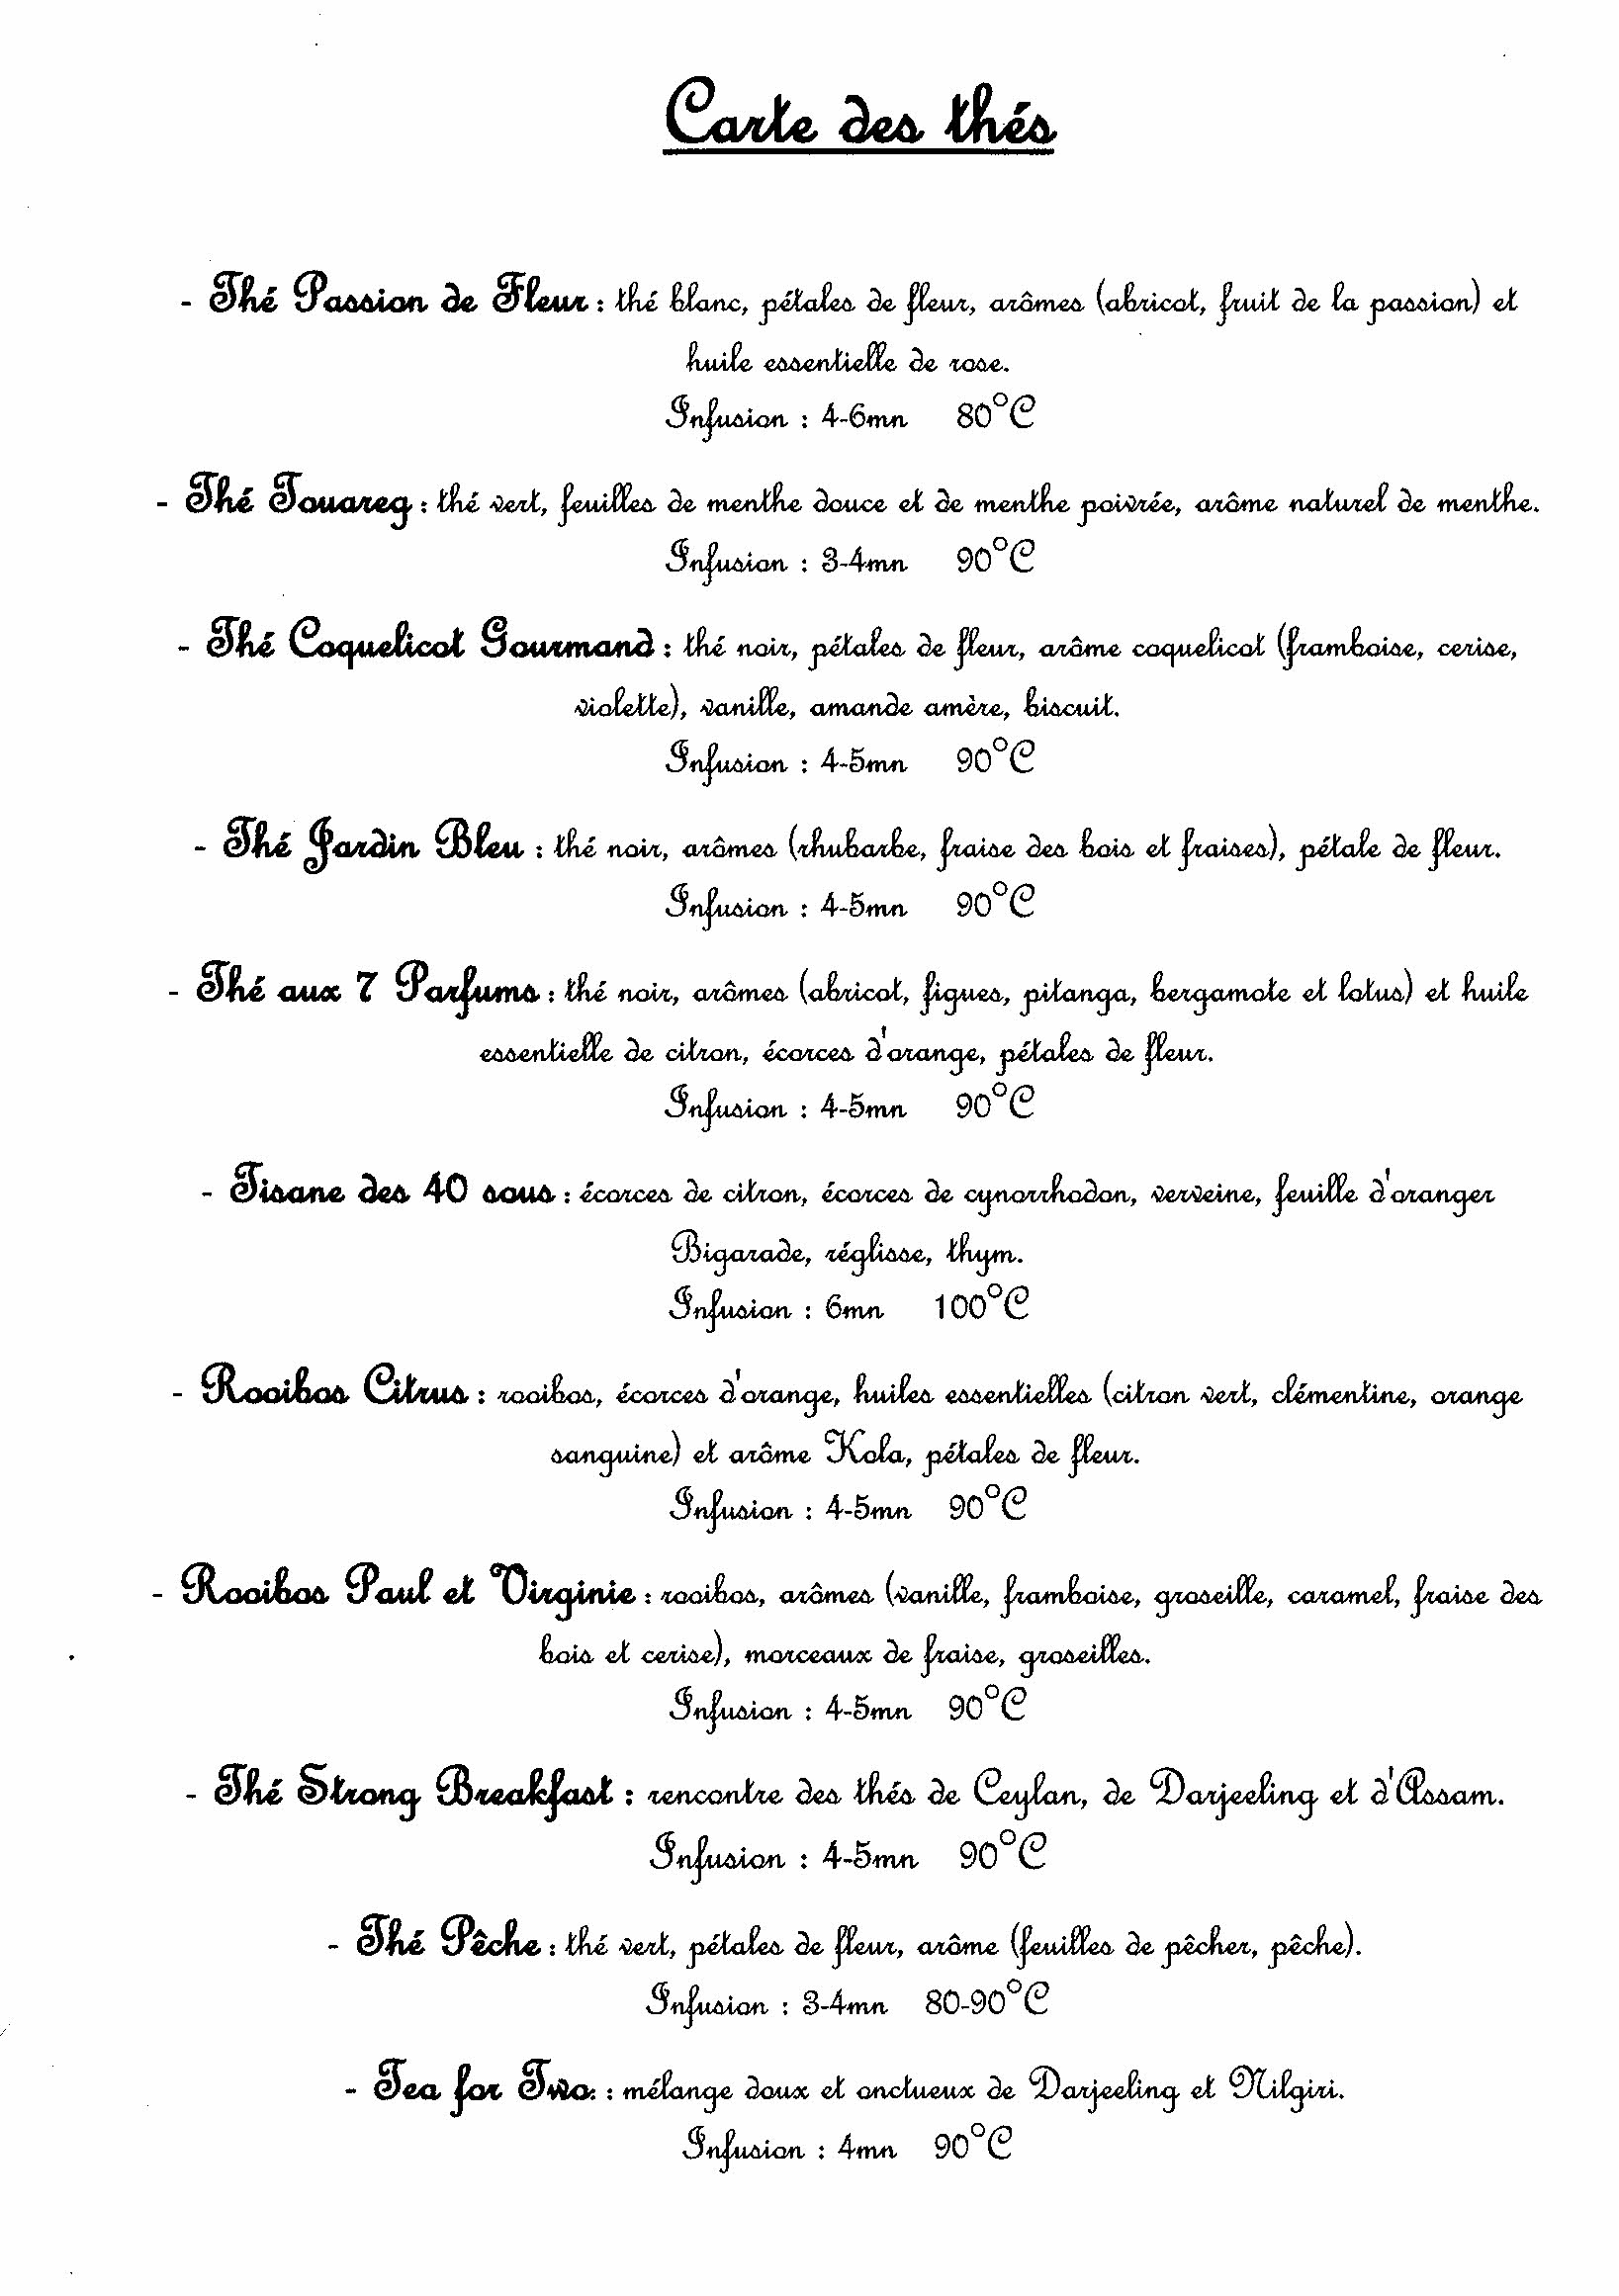 Carte des thés
- Thé Passion de Fleur : thé blanc, pétales de fleur, arômes (abricot, fruit de la passion) et
huile essentielle de rose.
Infusion : 4-6mn 80°C
- Thé Touareg : thé vert, feuilles de menthe douce et de menthe poivrée, arôme naturel de menthe.
Infusion : 3-4mn 90°C
- Thé Coquelicot Gourmand : thé noir, pétales de fleur, arôme coquelicot (framboise, cerise,
violette), vanille, amande amère, biscuit.
Infusion : 4-5mn 90°C
- Thé Jardin Bleu : thé noir, arômes (rhubarbe, fraise des bois et fraises), pétale de fleur.
Infusion : 4-5mn 90°C
- Thé aux 7 Parfums : thé noir, arômes (abricot, figues, pitanga, bergamote et lotus) et huile
essentielle de citron, écorces d'orange, pétales de fleur.
Infusion : 4-5mn 90°C
- Tisane des 40 sous : écorces de citron, écorces de cynorrhodon, verveine, feuille d'oranger
Bigarade, réglisse, thym.
Infusion : 6mn 100°C
- Rooibos Citrus : rooibos, écorces d'orange, huiles essentielles (citron vert, clémentine, orange
sanguine) et arôme Kola, pétales de fleur.
Infusion : 4-5mn 90°C
- Rooibos Paul et Virginie : rooibos, arômes (vanille, framboise, groseille, caramel, fraise des
bois et cerise), morceaux de fraise, groseilles.
Infusion : 4-5mn 90°C
- Thé Strong Breakfast : rencontre des thés de Ceylan, de Darjeeling et d'Assam.
Infusion : 4-5mn 90°C
- Thé Pêche : thé vert, pétales de fleur, arôme (feuilles de pêcher, pêche).
Infusion : 3-4mn 80-90°C
- Tea for Two: : mélange doux et onctueux de Darjeeling et Nilgiri.
Infusion : 4mn 90°C